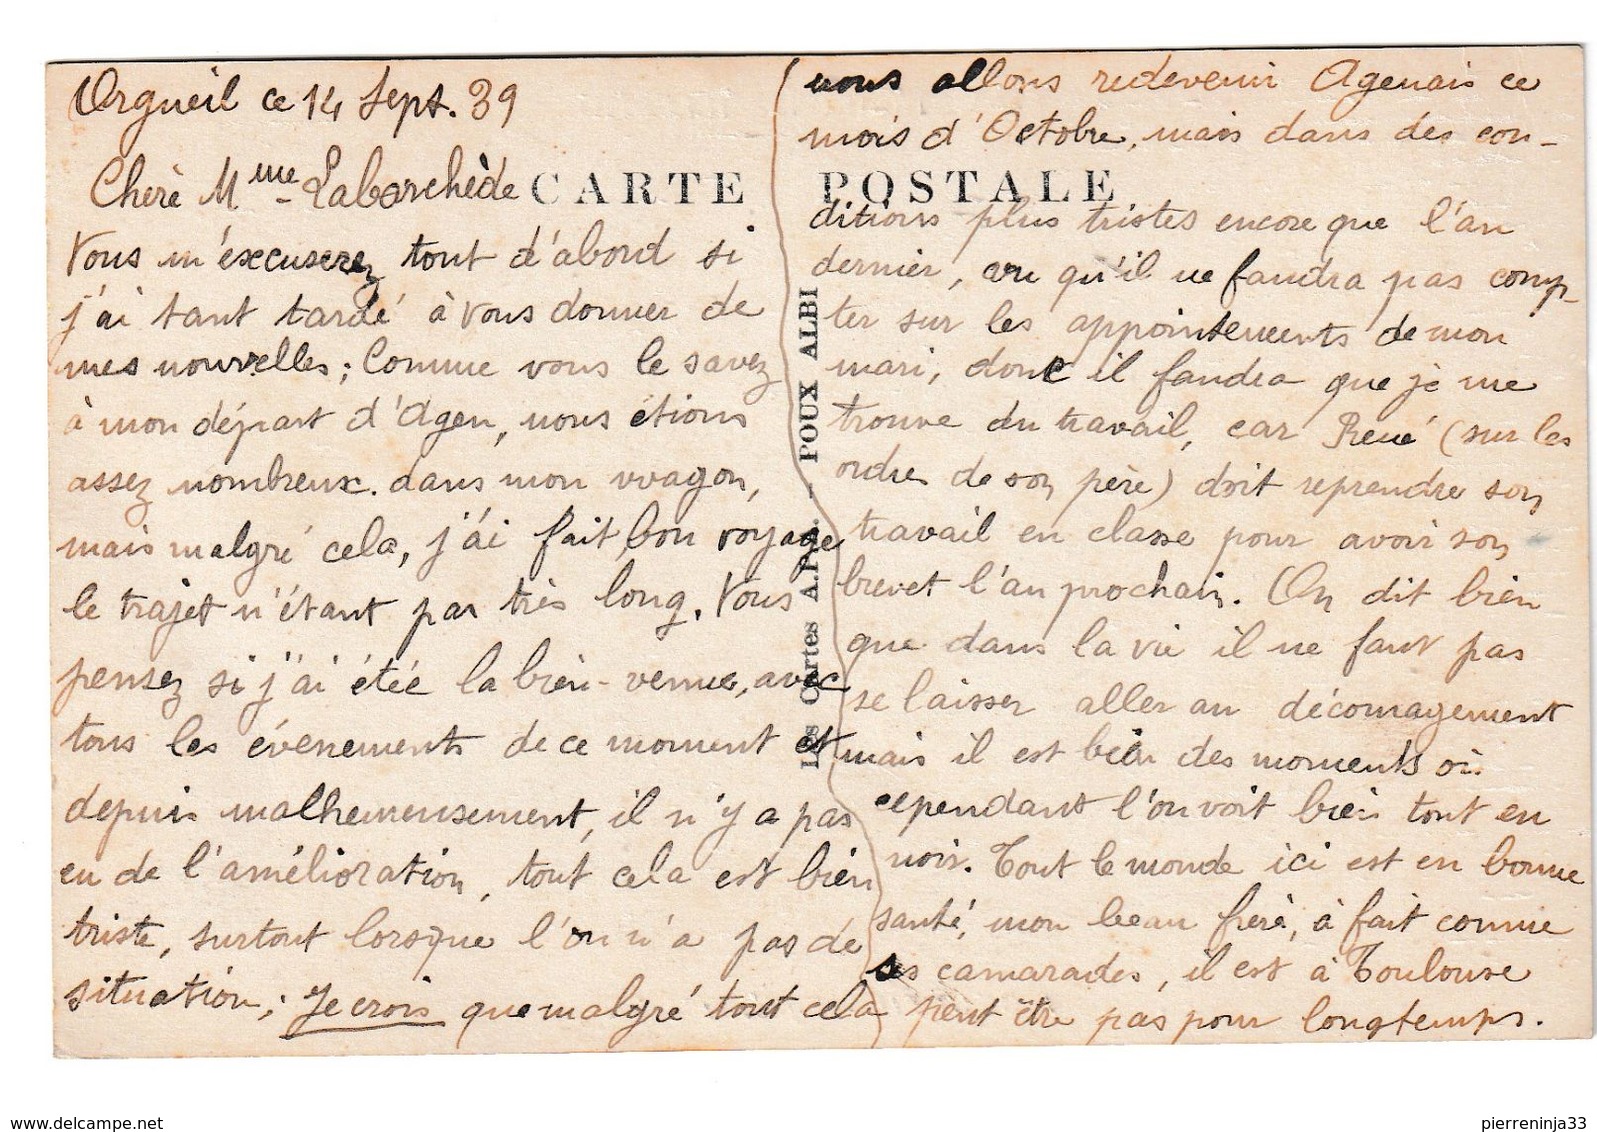 Orgueil ce 14 Sept. 39
Chère Mme Labarchède
CARTE POSTALE
Vous m'éxcuserez tout d'abord si
j'ai tant tardé à vous donner de
mes nouvelles ; Comme vous le savez
à mon départ d'Agen, nous étions
assez nombreux dans mon wagon,
mais malgré cela, j'ai fait bon voyage
le trajet n'étant pas très long. Vous
pensez si j'ai étée la bien-venue, avec
tous les évènements de ce moment et
depuis malheureusement, il n'y a pas
eu de l'amélioration, tout cela est bien
triste, surtout lorsque l'on n'a pas de
situation ; Je crois que malgré tout cela
nous allons redevenir Agenais ce
mois d'Octobre, mais dans des con-
ditions plus tristes encore que l'an
dernier, vu qu'il ne faudra pas comp-
ter sur les appointements de mon
mari, donc il faudra que je me
trouve du travail, car René (sur les
ordres de son père) doit reprendre son
travail en classe pour avoir son
brevet l'an prochain. On dit bien
que dans la vie il ne faut pas
se laisser aller au découragement
mais il est bien des moments où
cependant l'on voit bien tout en
noir. Tout le monde ici est en bonne
santé, mon beau frère, à fait comme
ses camarades, il est à Toulouse
peut être pas pour longtemps.
Les Cartes A.P.A. - POUX ALBI
www.delcampe.net
pierreninja33